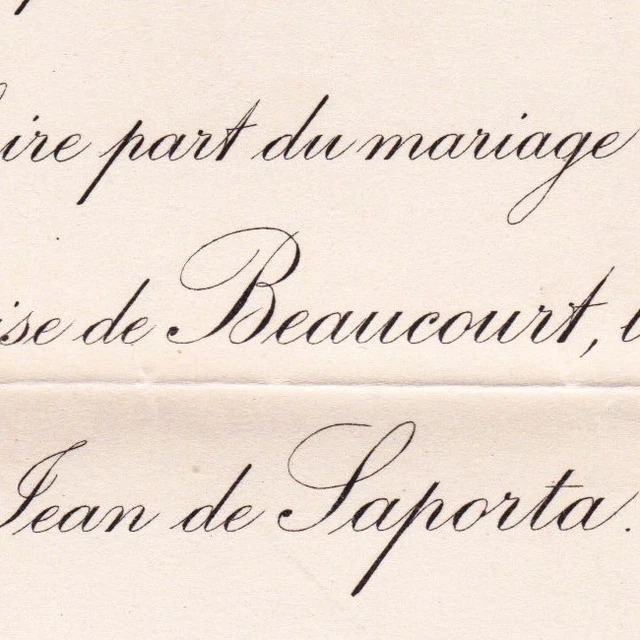 ire part du mariage
ise de Beaucourt, l
Jean de Saporta.